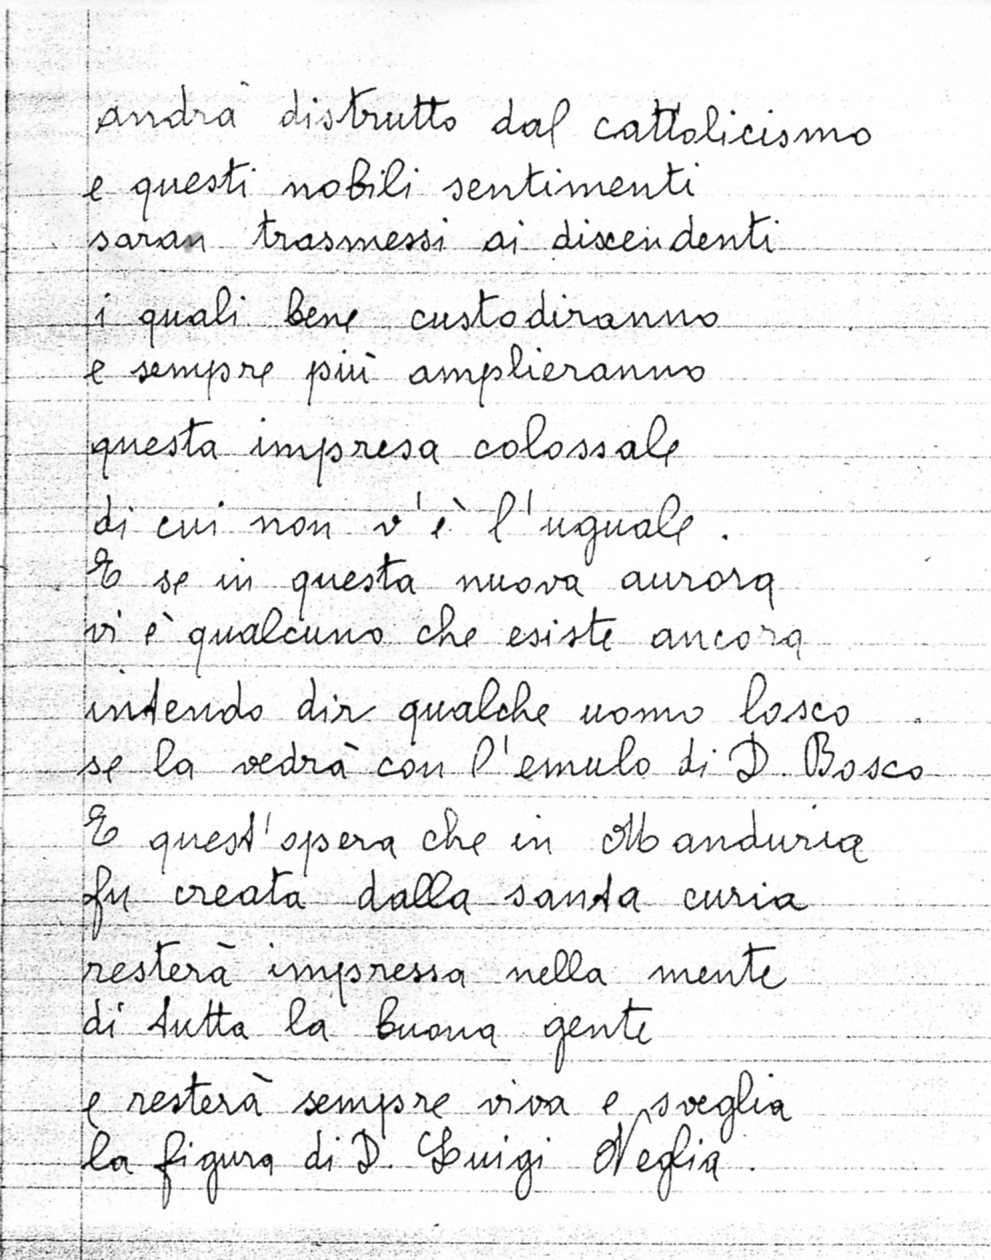 andrà distrutto dal cattolicismo
e questi nobili sentimenti
saran trasmessi ai discendenti
i quali bene custodiranno
e sempre più amplieranno
questa impresa colossale
di cui non v'è l'uguale.
E se in questa nuova aurora
vi è qualcuno che esiste ancora
intendo dir qualche uomo losco
se la vedrà con l'emulo di D. Bosco
E quest'opera che in Manduria
fu creata dalla santa curia
resterà impressa nella mente
di tutta la buona gente
e resterà sempre viva e sveglia
la figura di D. Luigi Neglia.